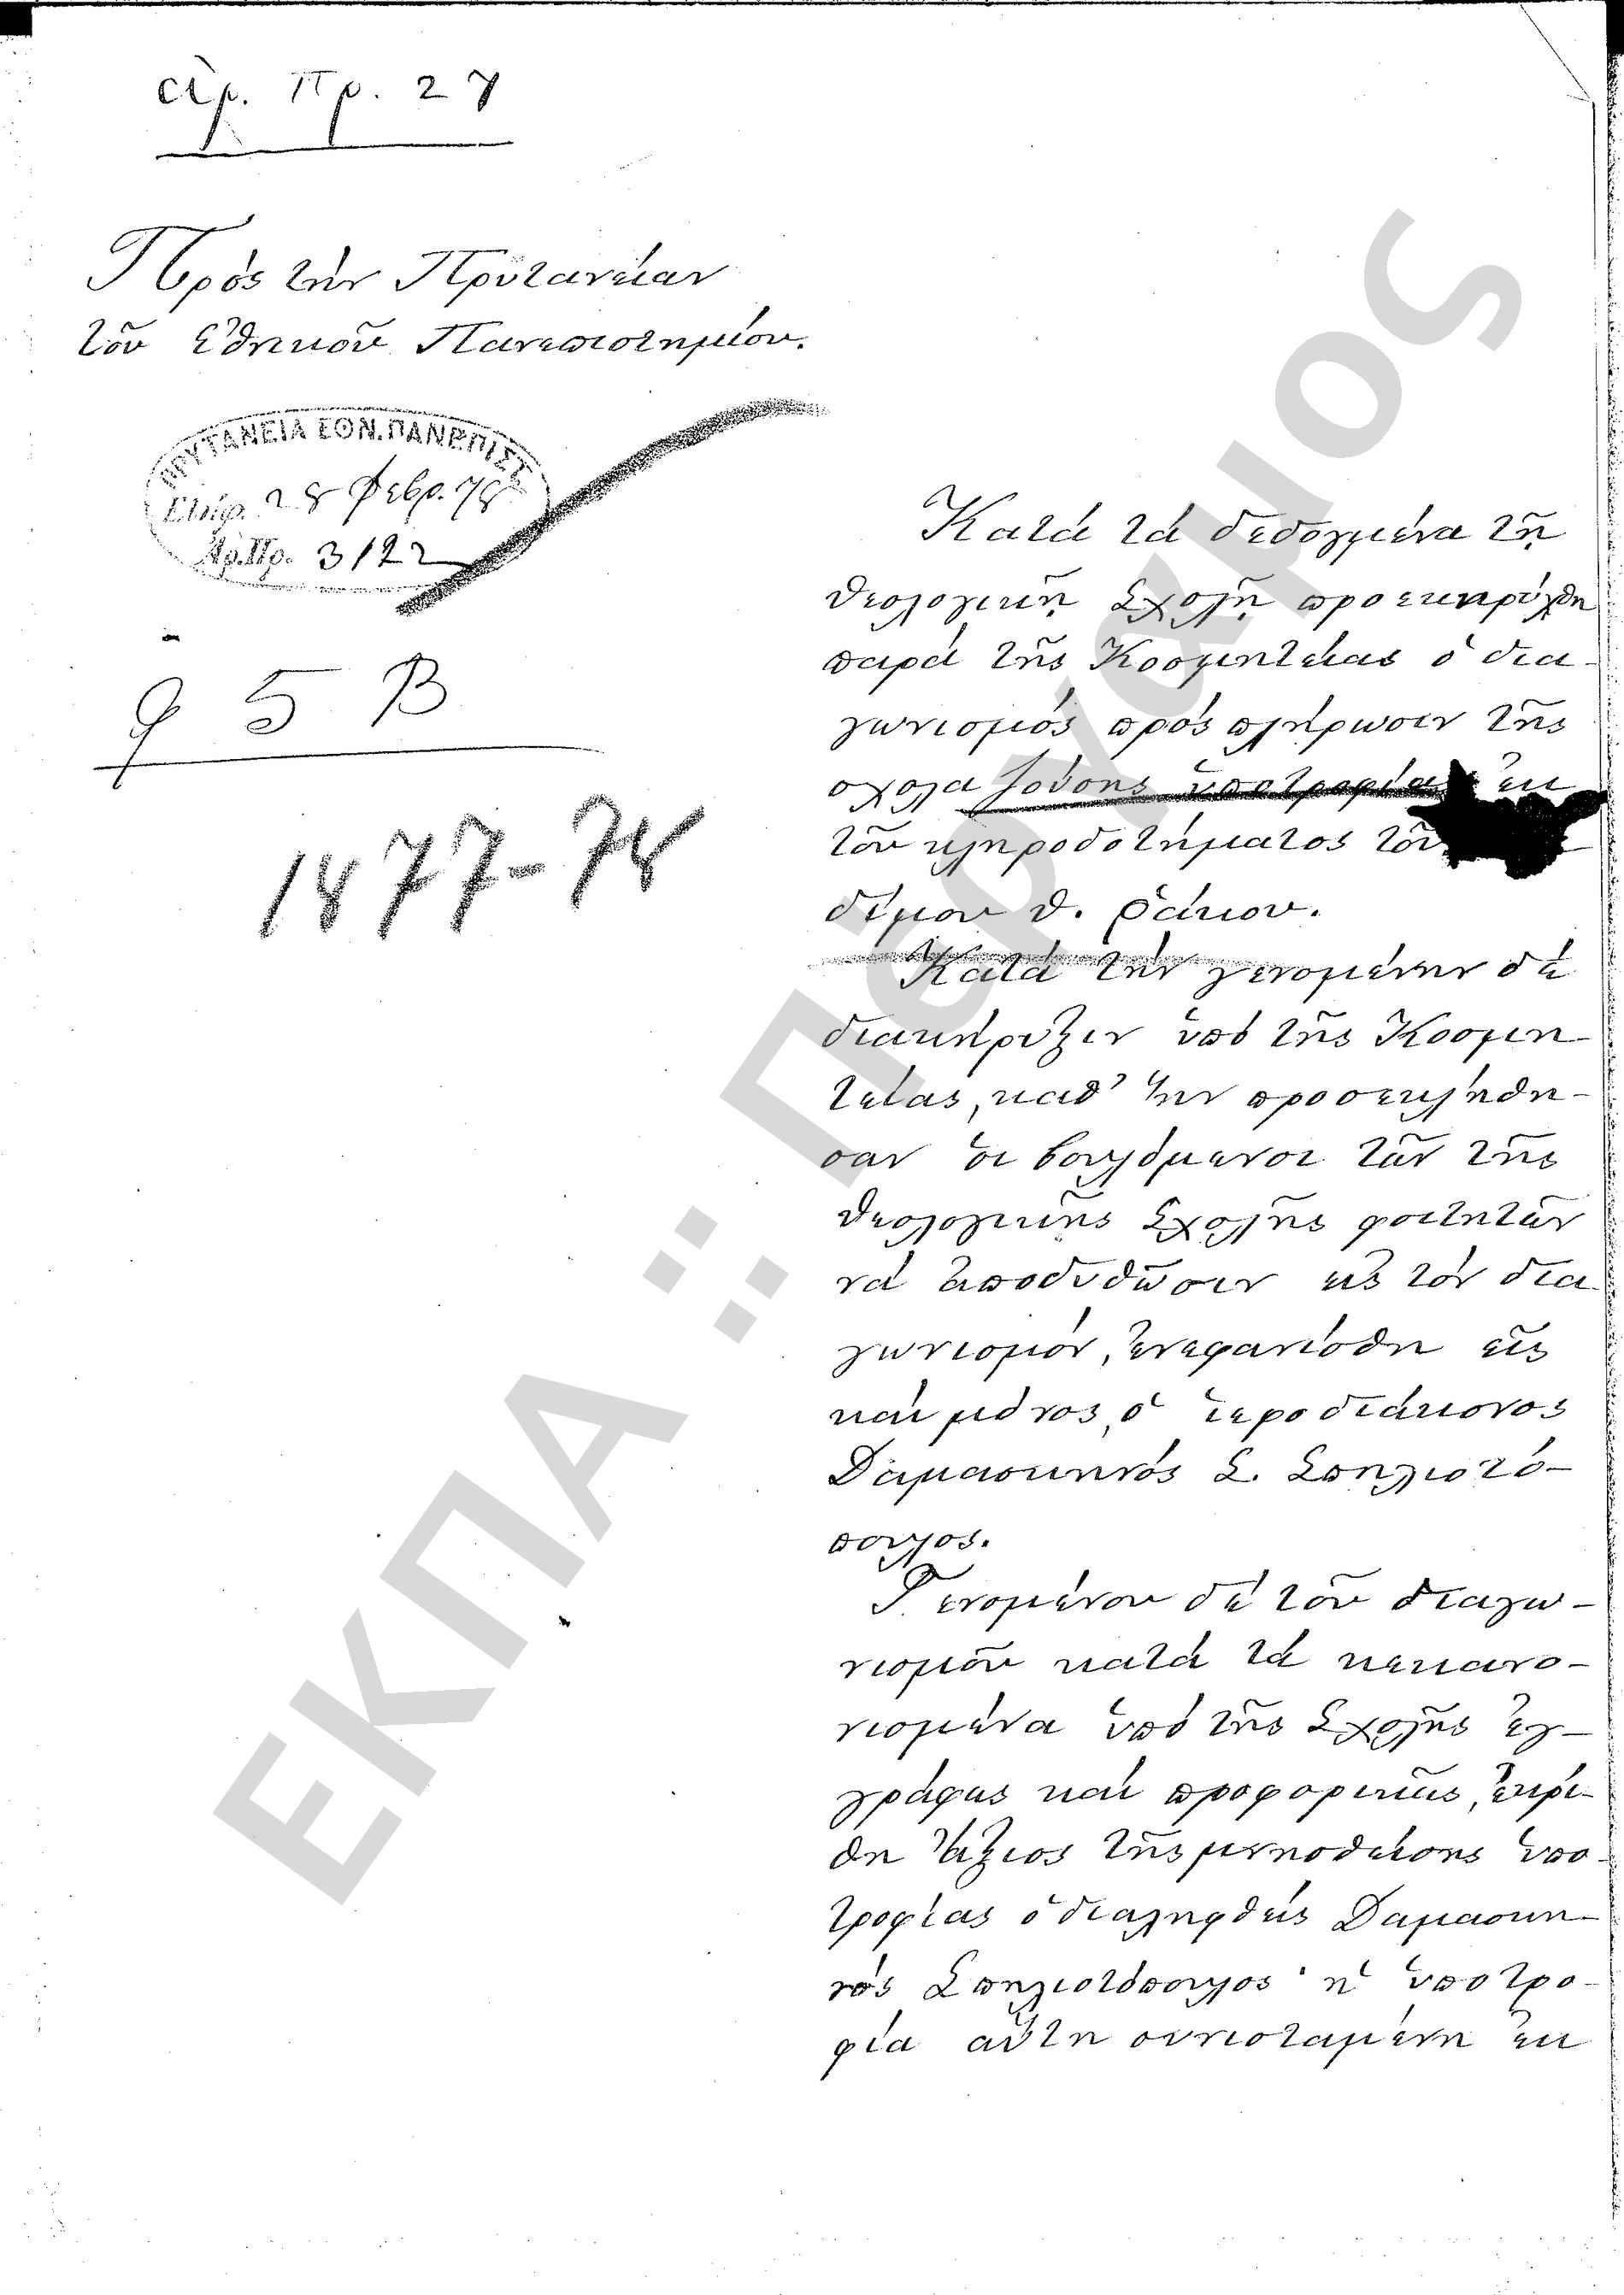 Ἀρ. Πρ. 27
Πρὸς τὴν Πρυτανείαν
τοῦ Ἐθνικοῦ Πανεπιστημίου.
ΠΡΥΤΑΝΕΙΑ ΕΘΝ. ΠΑΝΕΠΙΣΤ.
28 Φεβρ. 78
Ἀρ. Πρ. 3122
95 Β
1877-78
Κατὰ τὰ δεδογμένα τῇ
Θεολογικῇ Σχολῇ προεκηρύχθη
παρὰ τῆς Κοσμητείας ὁ δια-
γωνισμὸς πρὸς πλήρωσιν τῆς
σχολαζούσης ὑποτροφίας ἐκ
τοῦ κληροδοτήματος τοῦ
δίμου Θ. Ράκου.
Κατὰ τὴν γενομένην δὲ
διακήρυξιν ὑπὸ τῆς Κοσμη-
τείας, καθ' ἣν προσεκλήθη-
σαν οἱ βουλόμενοι τῶν τῆς
Θεολογικῆς Σχολῆς φοιτητῶν
νὰ ἀποδυθῶσιν εἰς τὸν δια
γωνισμόν, ἐνεφανίσθη εἷς
καὶ μόνος, ὁ ἱεροδιάκονος
Δαμασκηνὸς Σ. Σπηλιωτό-
πουλος.
Γενομένου δὲ τοῦ διαγω-
νισμοῦ κατὰ τὰ κεκανο-
νισμένα ὑπὸ τῆς Σχολῆς ἐγ-
γράφως καὶ προφορικῶς, ἐκρί-
θη ἄξιος τῆς μνησθείσης ὑπο-
τροφίας ὁ διαληφθεὶς Δαμασκη-
νὸς Σπηλιωτόπουλος· ἡ ὑποτρο-
φία αὕτη συνισταμένη ἐκ
ΕΚΠΑ :: Πέργαμος